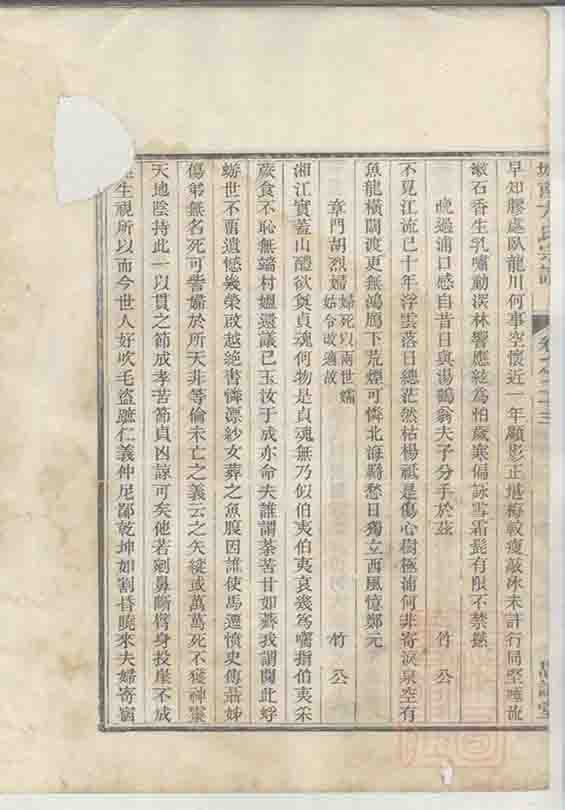 早知膠漆臥龍川何事空懷近一年顧影正堪梅較瘦敲冰未許行局堅噫流
漱石香生乳嘯動深林響應絃為怕歲寒偏詠雪霜髭有限不禁撚
晚過浦口感自昔日與湯鶴翁夫子分手於茲 竹公
不見江流已十年浮雲落日總茫然枯楊祗是傷心樹極浦何非寄淚泉空有
魚龍橫闊渡更無鴻鴈下荒煙可憐北海騎愁日獨立西風憶鄭元
章門胡烈婦 婦死以兩世孀姑令改適故 竹公
湘江實蓋山醴欲奠貞魂何物是貞魂無乃似伯夷伯夷哀幾為囓指伯夷采
蕨食不恥無端村媼還議已玉汝于成亦命夫誰謂荼苦甘如薺我謂閱此蜉
蝣世不甭遺憾幾榮啟越絶書憐漂紗女葬之魚腹因誰使馬遷憤史傳聶姊
傷弟無名死可訾婦於所天非等倫未亡之義云之矢縱或萬萬死不獲神靈
天地陰持此一以貫之節成孝苦節貞凶諒可矣他若剜鼻斷臂身投崖不成
生視所以而今世人好吹毛盜蹠仁義仲尼鄙乾坤如割昏曉來夫婦寄宿